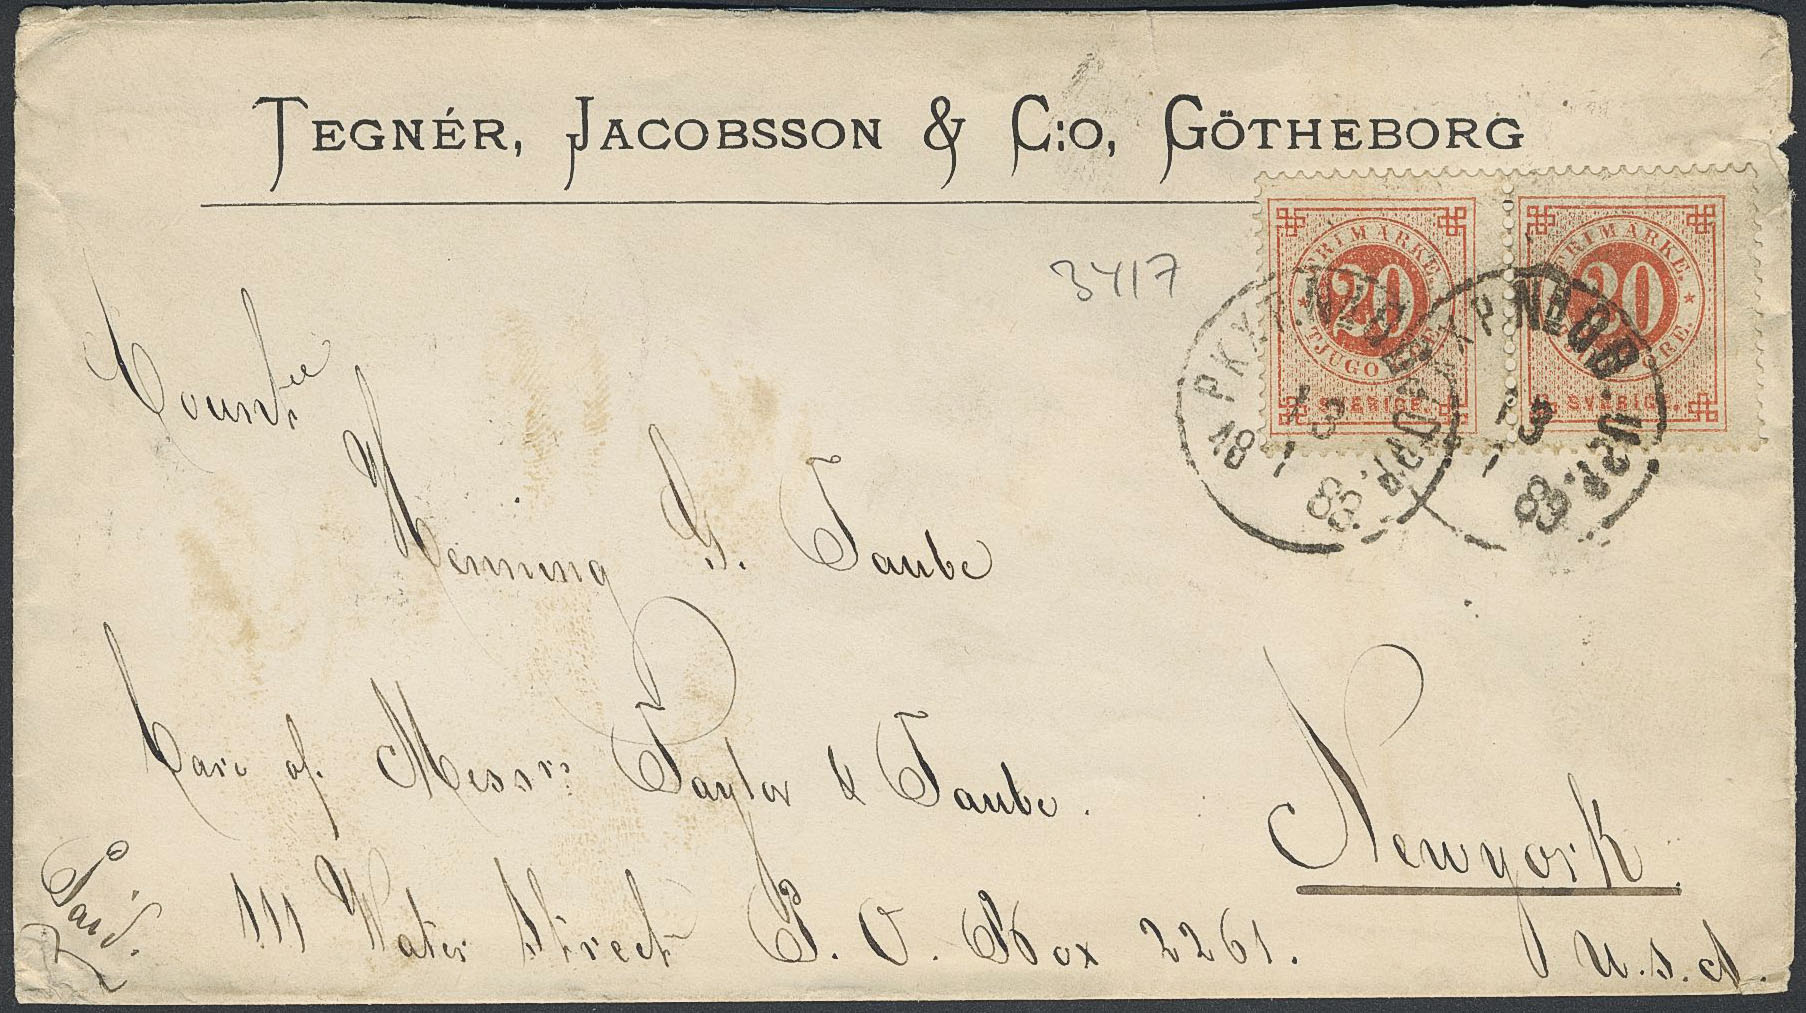 TEGNÉR, JACOBSSON & C:O, GÖTHEBORG
FRIMÄRKE.
20
TJUGO
SVERIGE.
FRIMÄRKE.
20
SVERIGE.
PKXP. No 2
18 1 3 83
PKXP. No 2
3 83
3417
Count
Henning G. Taube
Care of Messrs Taylor & Taube.
111 Water Street P. O. Box 2261.
Newyork.
U.S.A.
Paid.